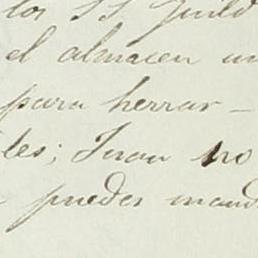 los SS Guild
el almacen un
para herrar-
les; Juan no
puedes mand